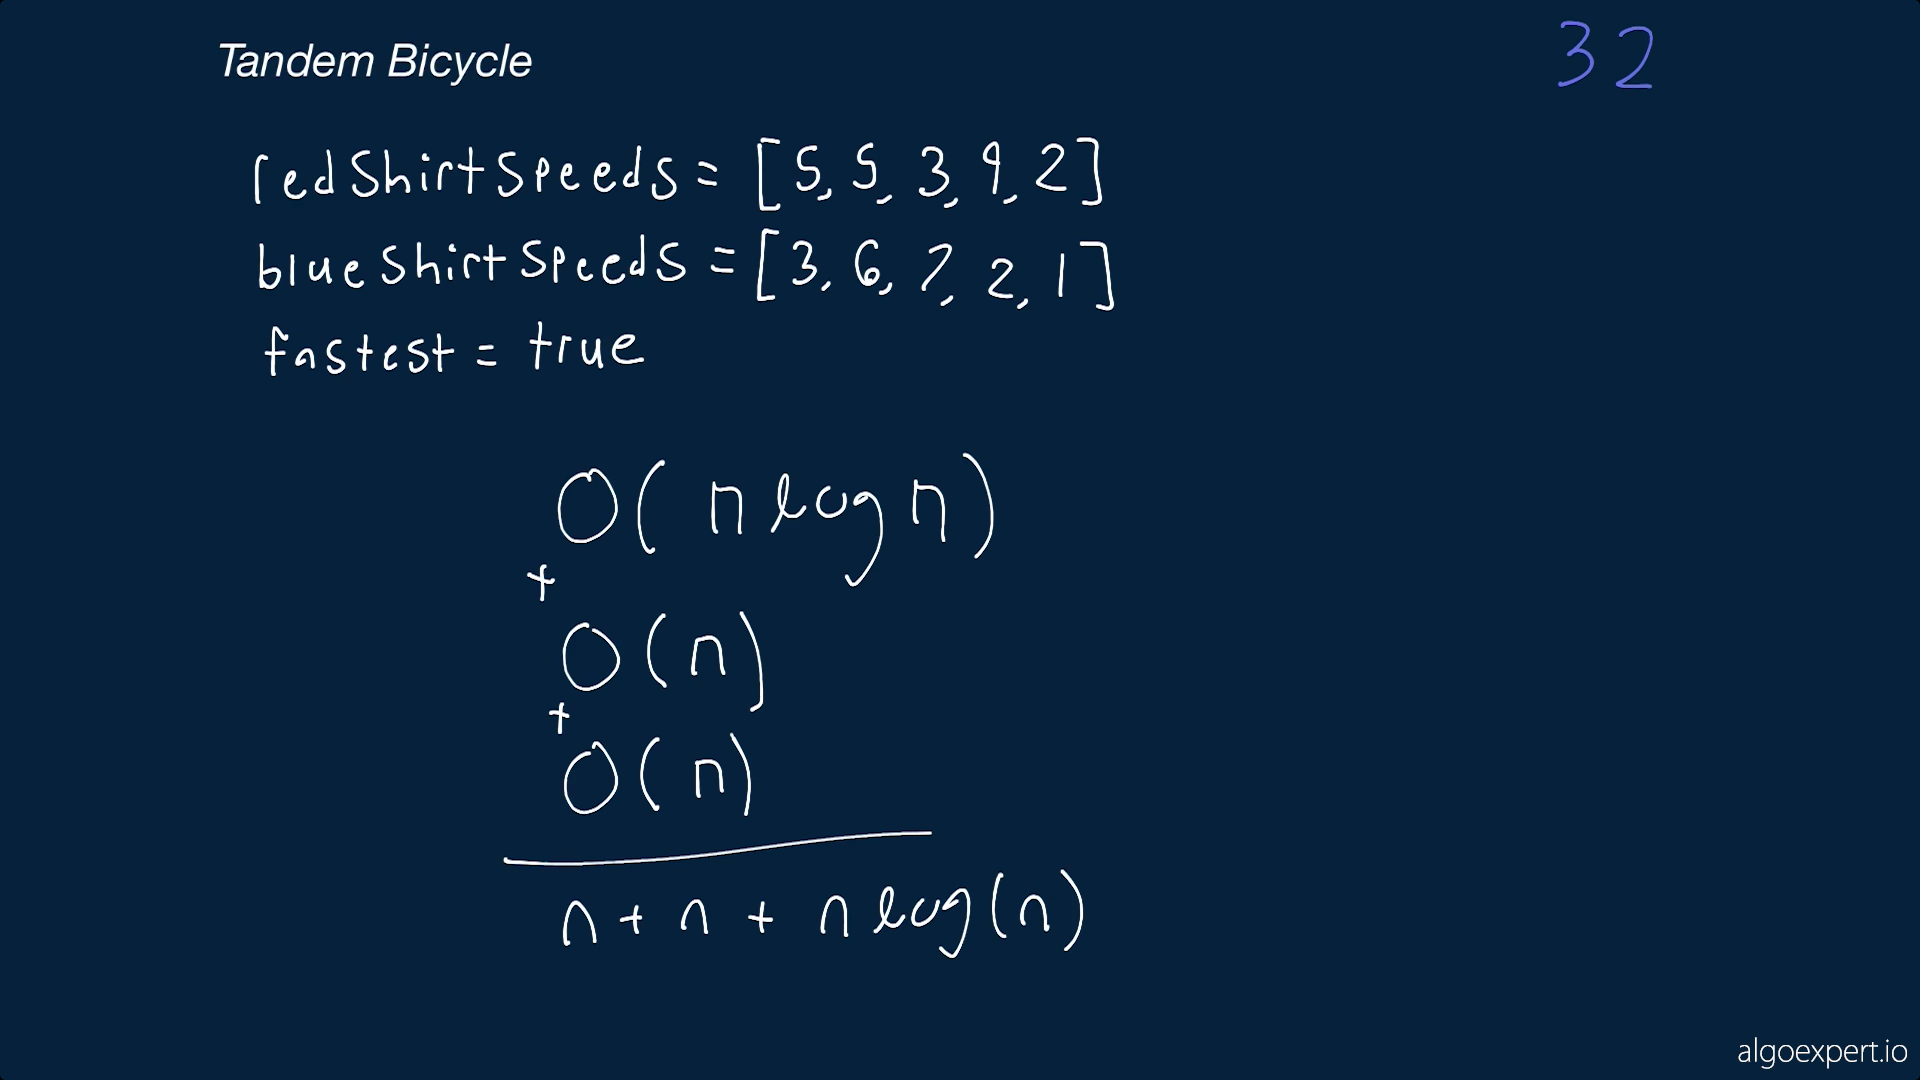 Tandem Bicycle
32
redShirtSpeeds = [5, 5, 3, 9, 2]
blueShirtSpeeds = [3, 6, 7, 2, 1]
fastest = true
O(n log n)
+
O(n)
+
O(n)
n + n + n log(n)
algoexpert.io